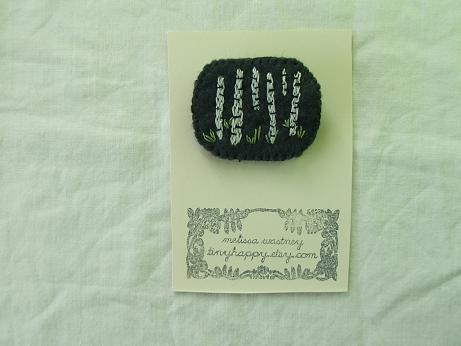 melissa wastney
tinyhappy.etsy.com